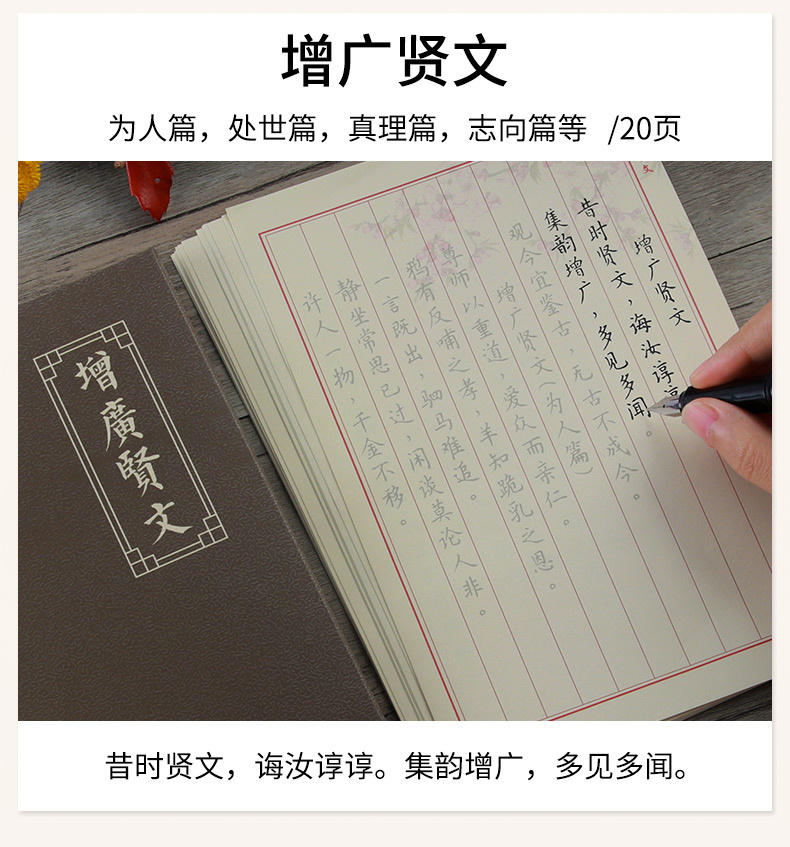 增广贤文
为人篇，处世篇，真理篇，志向篇等 /20页
增廣賢文
文
增广贤文
昔时贤文，诲汝谆谆。
集韵增广，多见多闻
观今宜鉴古，无古不成今。
增广贤文(为人篇)
尊师以重道，爱众而亲仁。
鸦有反哺之孝，羊知跪乳之恩。
一言既出，驷马难追。
静坐常思己过，闲谈莫论人非。
许人一物，千金不移。
昔时贤文，诲汝谆谆。集韵增广，多见多闻。